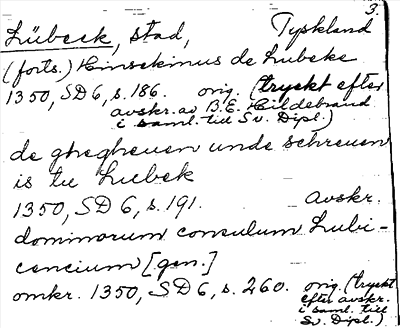 3.
Lübeck, stad, Tyskland
(forts.) Hinsekinus de Lubeke
1350, SD 6, s. 186. orig. (tryckt efter
avskr. av B.E. Hildebrand
i saml. till Sv. Dipl.)
de ghegheuen unde schreuen
is tu Lubek
1350, SD 6, s. 191. Avskr.
dominorum consulum Lubi-
cencium [gen.]
omkr. 1350, SD 6, s. 260. orig. (tryckt
efter avskr.
i saml. till
Sv. Dipl.)